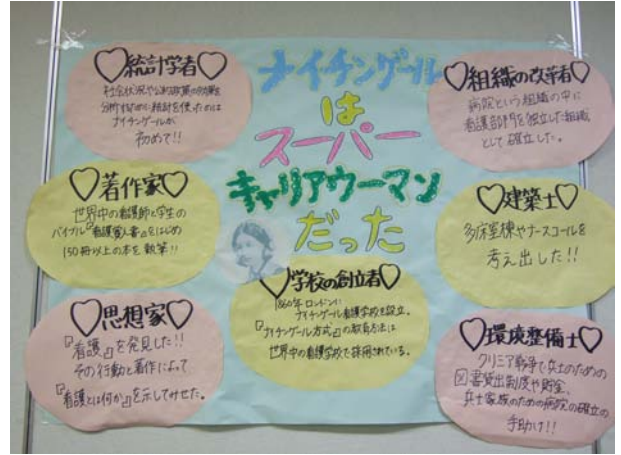 ナイチンゲール
は
スーパー
キャリアウーマン
だった
♡統計学者♡
社会状況や公的政策の効果を
分析するために統計を使ったのは
ナイチンゲールが
初めて!!
♡著作家♡
世界中の看護師と学生の
バイブル『看護覚え書』をはじめ
150冊以上の本を執筆!!
♡思想家♡
『看護』を発見した!!
その行動と著作によって
『看護とは何か』を示してみせた。
♡学校の創立者♡
1860年ロンドンに
ナイチンゲール看護学校を設立。
『ナイチンゲール方式』の教育方法は
世界中の看護学校で採用されている。
♡組織の改革者♡
病院という組織の中に
看護部門を独立した組織
として確立した。
♡建築士♡
多床室棟やナースコールを
考え出した!!
♡環境整備士♡
クリミア戦争で兵士のための
図書貸出制度や貯金、
兵士家族のための病院の確立の
手助け!!